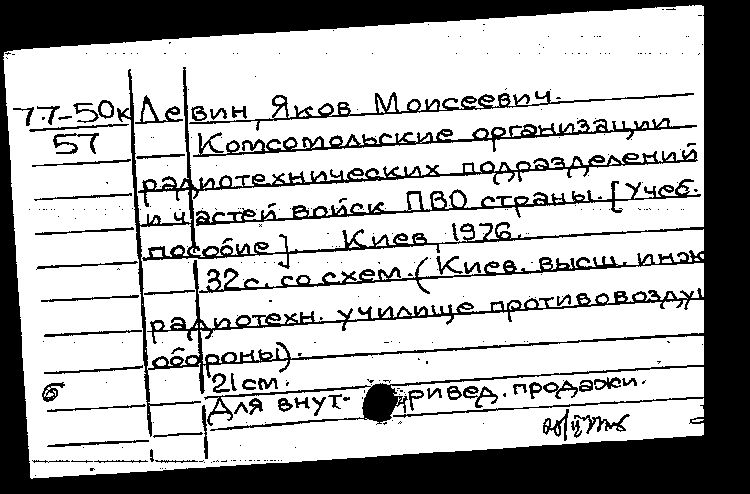 77-50к Левин, Яков Моисеевич.
57 Комсомольские организации
радиотехнических подразделений
и частей войск ПВО страны. [Учеб.
пособие]. Киев, 1976.
32с. со схем. (Киев. высш. инж
радиотехн. училище противовозду
обороны).
21см.
б Для внут- ривед. продажи.